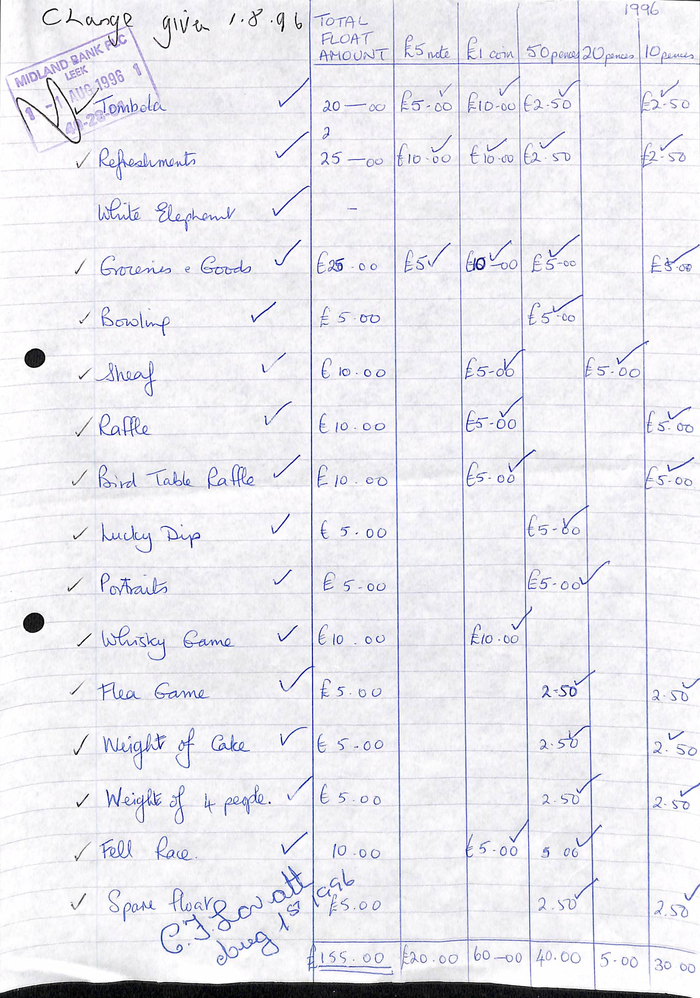 Change given 1.8.96
1996
TOTAL FLOAT AMOUNT £5 note £1 coin 50 pences 20 pences 10 pences
MIDLAND BANK PLC
LEEK
1 - 1 AUG 1996 1
Tombola 20—00 £5-00 £10-00 £2-50 £2-50
2
Refreshments 25—00 £10.00 £10.00 £2.50 £2-50
White Elephant -
Groceries & Goods £25.00 £5 £10-00 £5-00 £5-00
Bowling £5.00 £5-00
Sheaf £10.00 £5-00 £5-00
Raffle £10.00 £5-00 £5.00
Bird Table Raffle £10.00 £5-00 £5-00
Lucky Dip £5.00 £5-00
Portraits £5.00 £5-00
Whisky Game £10.00 £10.00
Flea Game £5.00 2.50 2.50
Weight of Cake £5.00 2.50 2.50
Weight of 4 people. £5.00 2.50 2.50
Fell Race. 10.00 £5.00 5 00
Spare float £5.00 2.50 2.50
C.F. Lovatt
Aug 1st 1996
£155.00 £20.00 60—00 40.00 5.00 30 00